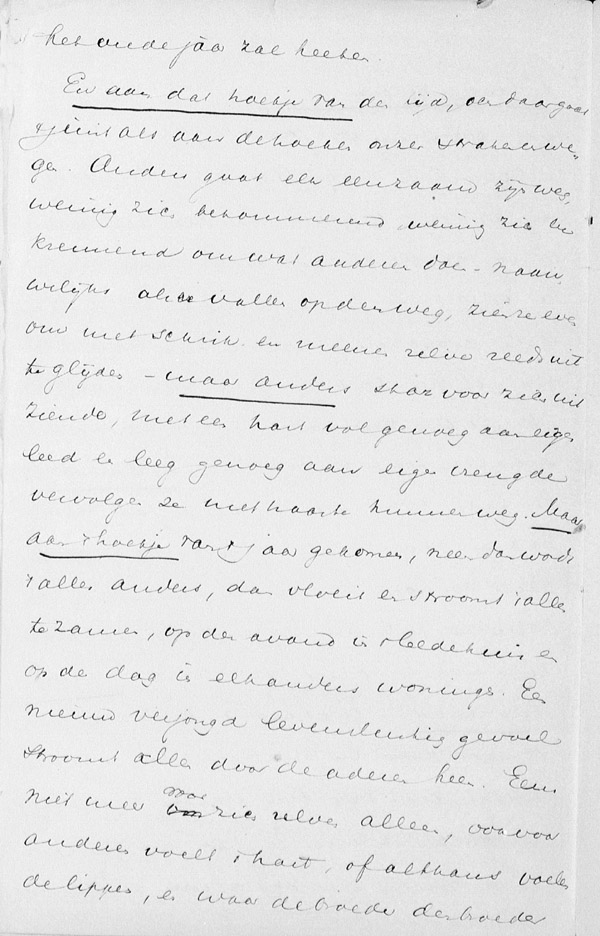 het oude jaar zal heeten.
En aan dat hoekje van den tijd, och daar gaat
't juist als aan de hoeken onzer straten en we-
gen. Anders gaat elk eenzaam zijn weg,
weinig zich bekommerend weinig zich be
kreunend om wat anderen doen - naau
welijks vallen op den weg, zien ze even
om met schrik en meenen zelve reeds uit
te glijden - maar anders strak voor zich uit
ziende, met een hart vol genoeg aan eigen
leed en leeg genoeg aan eigen vreugde
vervolgen ze met haaste hunnen weg. Maar
aan 't hoekje van 't jaar gekomen, neen dan wordt
't alles anders, dan vloeit en stroomt 't alles
te zamen, op den avond in 't bedehuis en
op de dag in elkanders woning. Een
nieuw verjongd levenslustig gevoel
stroomt allen door de aderen heen. Een
niet meer voor zich zelven alleen, voor
anderen voelt 't hart, of althans voelen
de lippen, en waar de broeder den broeder